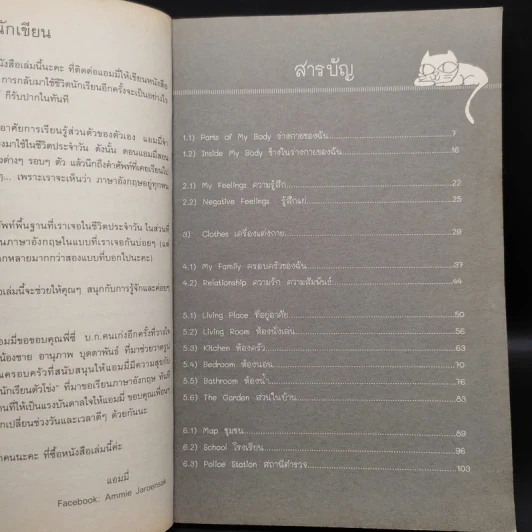 นักเขียน
หนังสือเล่มนี้นะคะ ที่ติดต่อแอมมี่ให้เขียนหนังสือ
การกลับมาใช้ชีวิตนักเรียนอีกครั้งจะเป็นอย่างไร
ก็รับปากในทันที
อาศัยการเรียนรู้ส่วนตัวของตัวเอง แอมมี่จำ
มาใช้ในชีวิตประจำวัน ดังนั้น ตอนแอมมี่สอน
ต่างๆ รอบๆ ตัว แล้วนึกถึงคำศัพท์ที่เคยเรียน
... เพราะเราจะเห็นว่า ภาษาอังกฤษอยู่ทุกหน
ศัพท์พื้นฐานที่เราเจอในชีวิตประจำวัน ในส่วนที่
นภาษาอังกฤษในแบบที่เราเจอกันบ่อยๆ (แต่
กหลายมากกว่าสองแบบที่บอกไปนะคะ)
เล่มนี้จะช่วยให้คุณๆ สนุกกับการรู้จักและค่อยๆ
มมี่ขอขอบคุณพี่ซี่ บ.ก.คนเก่งอีกครั้งที่วางใจ
น้องชาย อานุภาพ บุดดาพันธ์ ที่มาช่วยวาดรูป
ครอบครัวที่สนับสนุนให้แอมมี่มีความสุขกับ
นักเรียนตัวโข่ง" ที่มาขอเรียนภาษาอังกฤษ ทันที
านที่ให้เป็นแรงบันดาลใจให้แอมมี่ ขอบคุณเพื่อนๆ
กเปลี่ยนช่วงวันและเวลาดีๆ ด้วยกันนะ
คนนะคะ ที่ซื้อหนังสือเล่มนี้ค่ะ
แอมมี่
Facebook: Ammie Jaroensuk
สารบัญ
1.1) Parts of My Body ร่างกายของฉัน 7
1.2) Inside My Body ข้างในร่างกายของฉัน 16
2.1) My Feelings ความรู้สึก 22
2.2) Negative Feelings รู้สึกแย่ 25
3) Clothes เครื่องแต่งกาย 29
4.1) My Family ครอบครัวของฉัน 37
4.2) Relationship ความรัก ความสัมพันธ์ 44
5.1) Living Place ที่อยู่อาศัย 50
5.2) Living Room ห้องนั่งเล่น 56
5.3) Kitchen ห้องครัว 63
5.4) Bedroom ห้องนอน 70
5.5) Bathroom ห้องน้ำ 76
5.6) The Garden สวนในบ้าน 83
6.1) Map ชุมชน 89
6.2) School โรงเรียน 96
6.3) Police Station สถานีตำรวจ 103